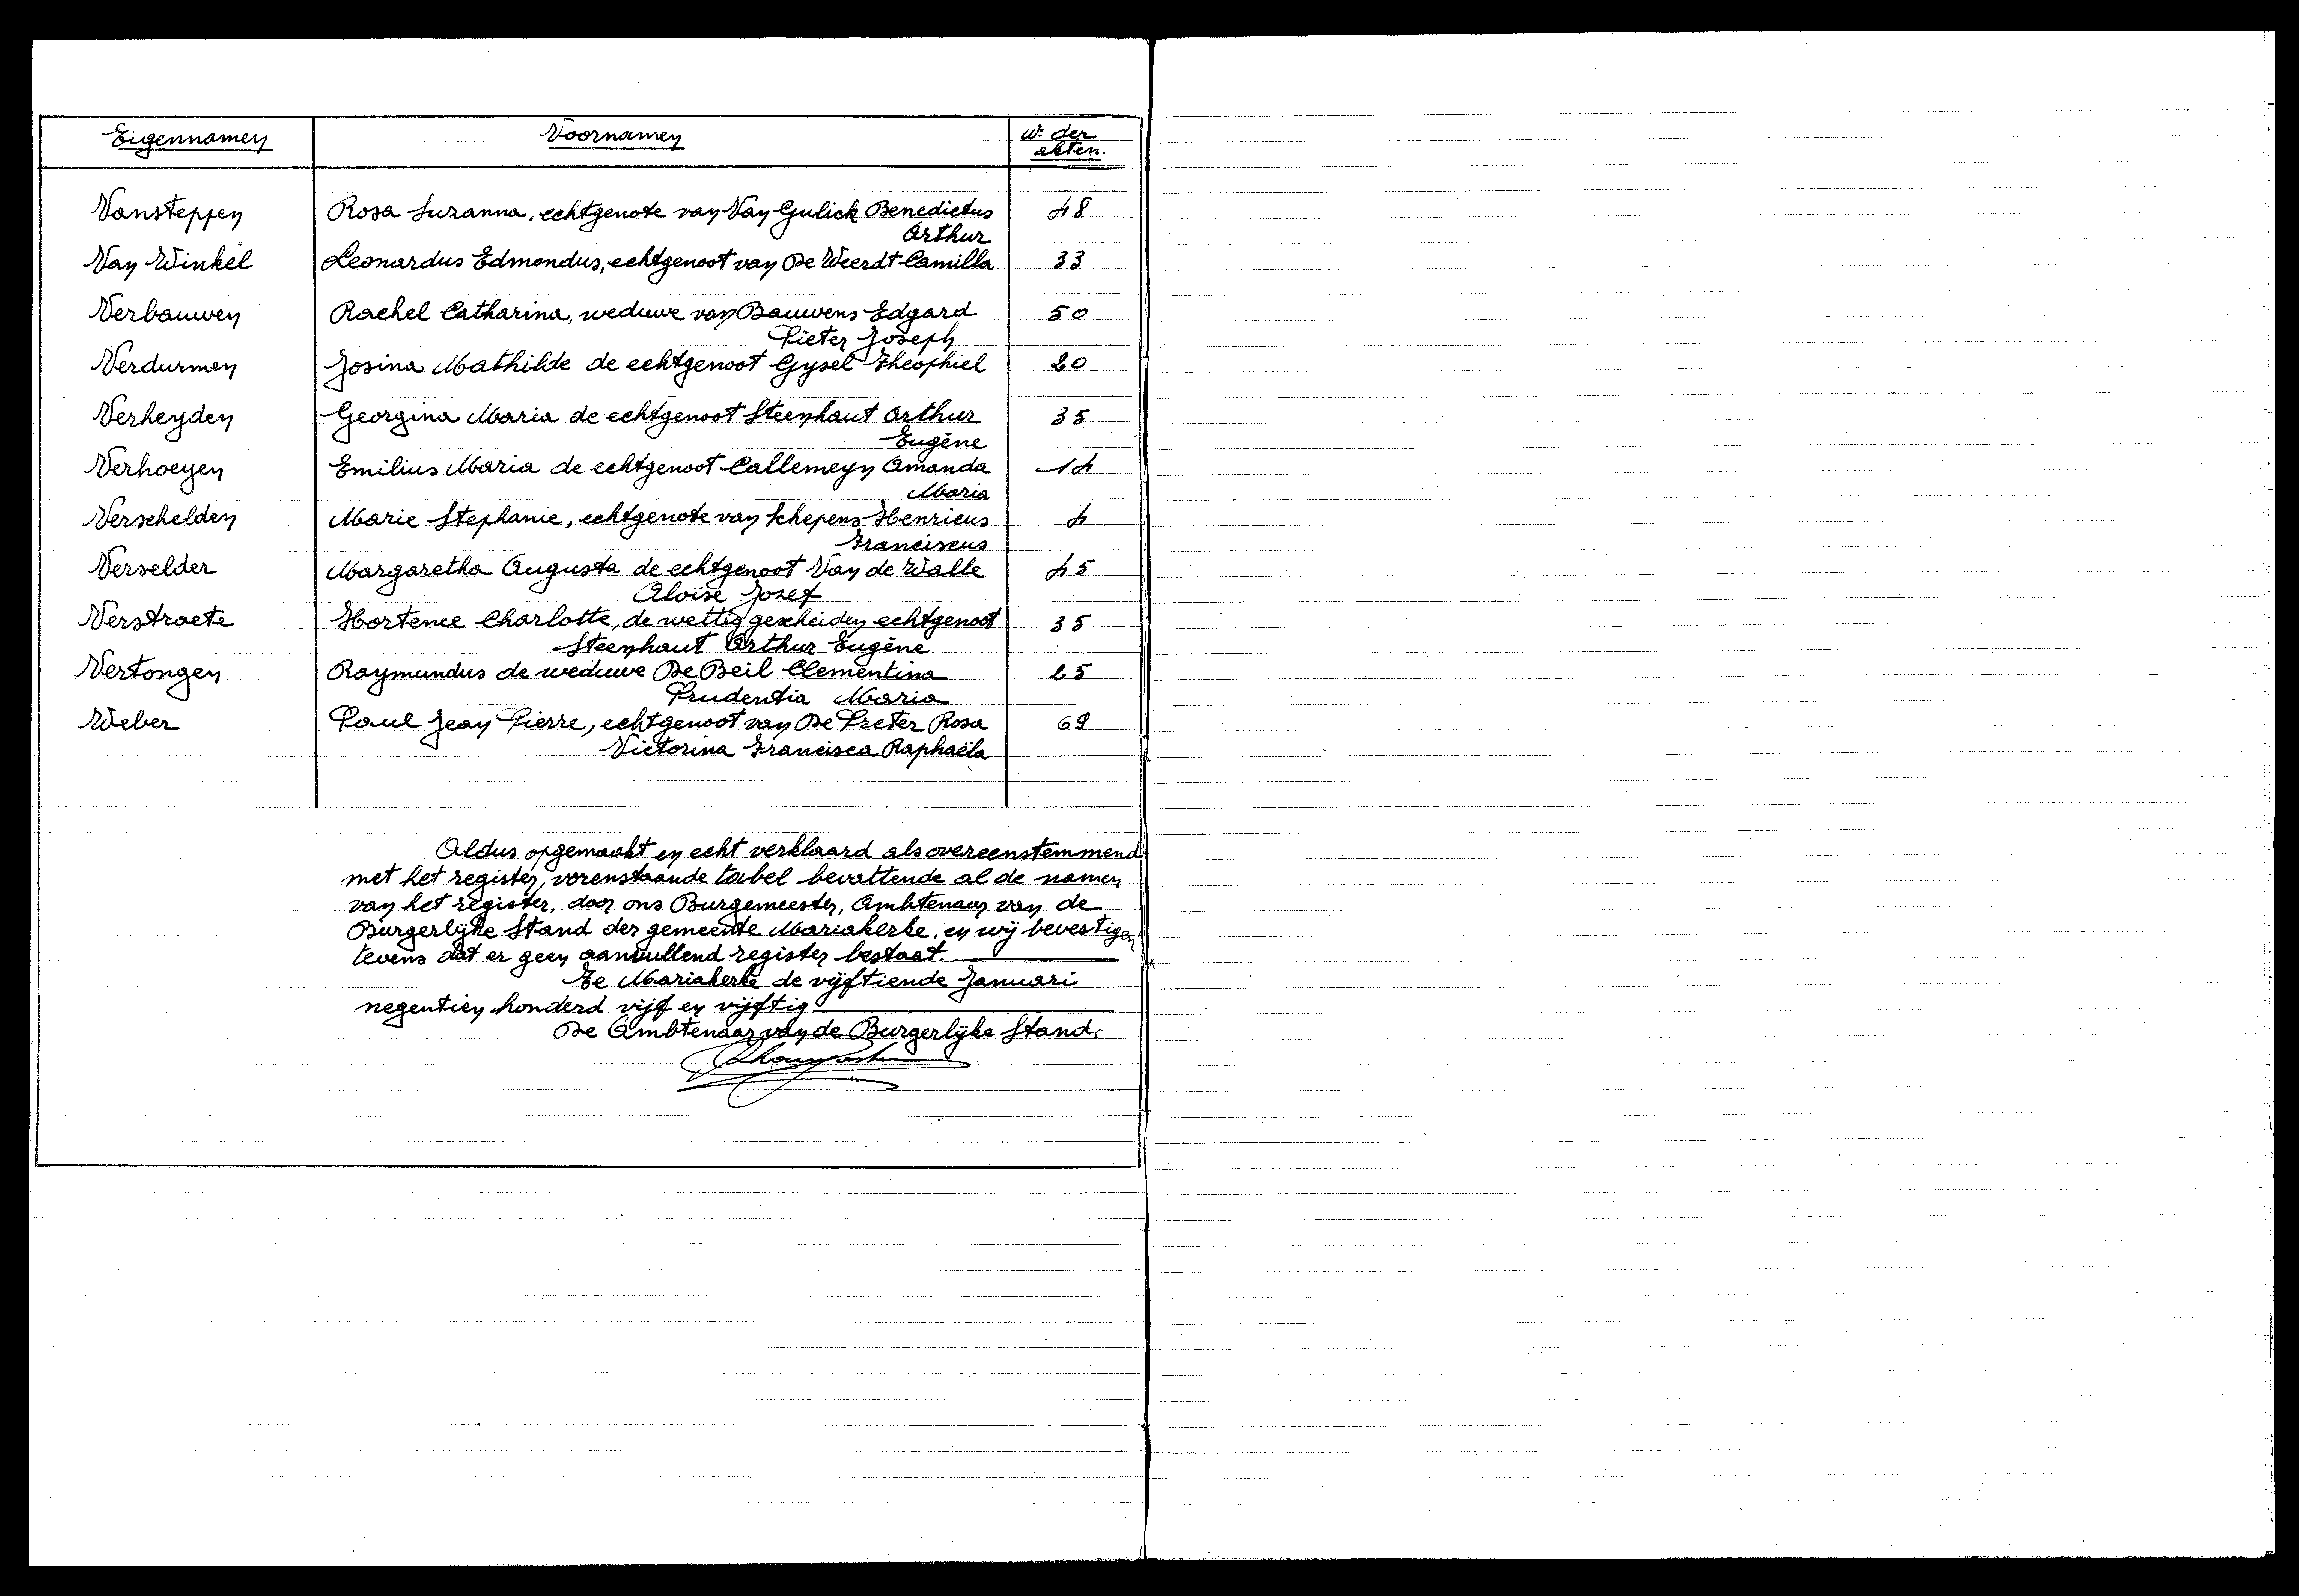 Eigennamen Voornamen N: der
akten.
Vansteppen Rosa Suzanna, echtgenote van Van Gulick Benedictus 48
Arthur
Van Winkel Leonardus Edmondus, echtgenoot van De Weerdt Camilla 33
Verbauwen Rachel Catharina, weduwe van Bauwens Edgard 50
Pieter Joseph
Verdurmen Josina Mathilde de echtgenoot Gysel Theophiel 20
Verheyden Georgina Maria de echtgenoot Steenhaut Arthur 35
Eugène
Verhoeyen Emilius Maria de echtgenoot Callemeyn Amanda 14
Maria
Verschelden Marie Stephanie, echtgenote van Schepens Henricus 4
Franciscus
Verselder Margaretha Augusta de echtgenoot Van de Walle 45
Aloïse Jozef
Verstraete Hortence Charlotte, de wettig gescheiden echtgenoot 35
Steenhaut Arthur Eugène
Vertongen Raymundus de weduwe De Beil Clementina 25
Prudentia Maria
Weber Paul Jean Pierre, echtgenoot van De Preter Rosa 69
Victorina Francisca Raphaëla
Aldus opgemaakt en echt verklaard als overeenstemmend
met het register, vorenstaande tabel bevattende al de namen
van het register, door ons Burgemeester, Ambtenaar van de
Burgerlijke Stand der gemeente Mariakerke, en wij bevestigen
tevens dat er geen aanvullend register bestaat.
Te Mariakerke de vijftiende Januari
negentien honderd vijf en vijftig
De Ambtenaar van de Burgerlijke Stand.